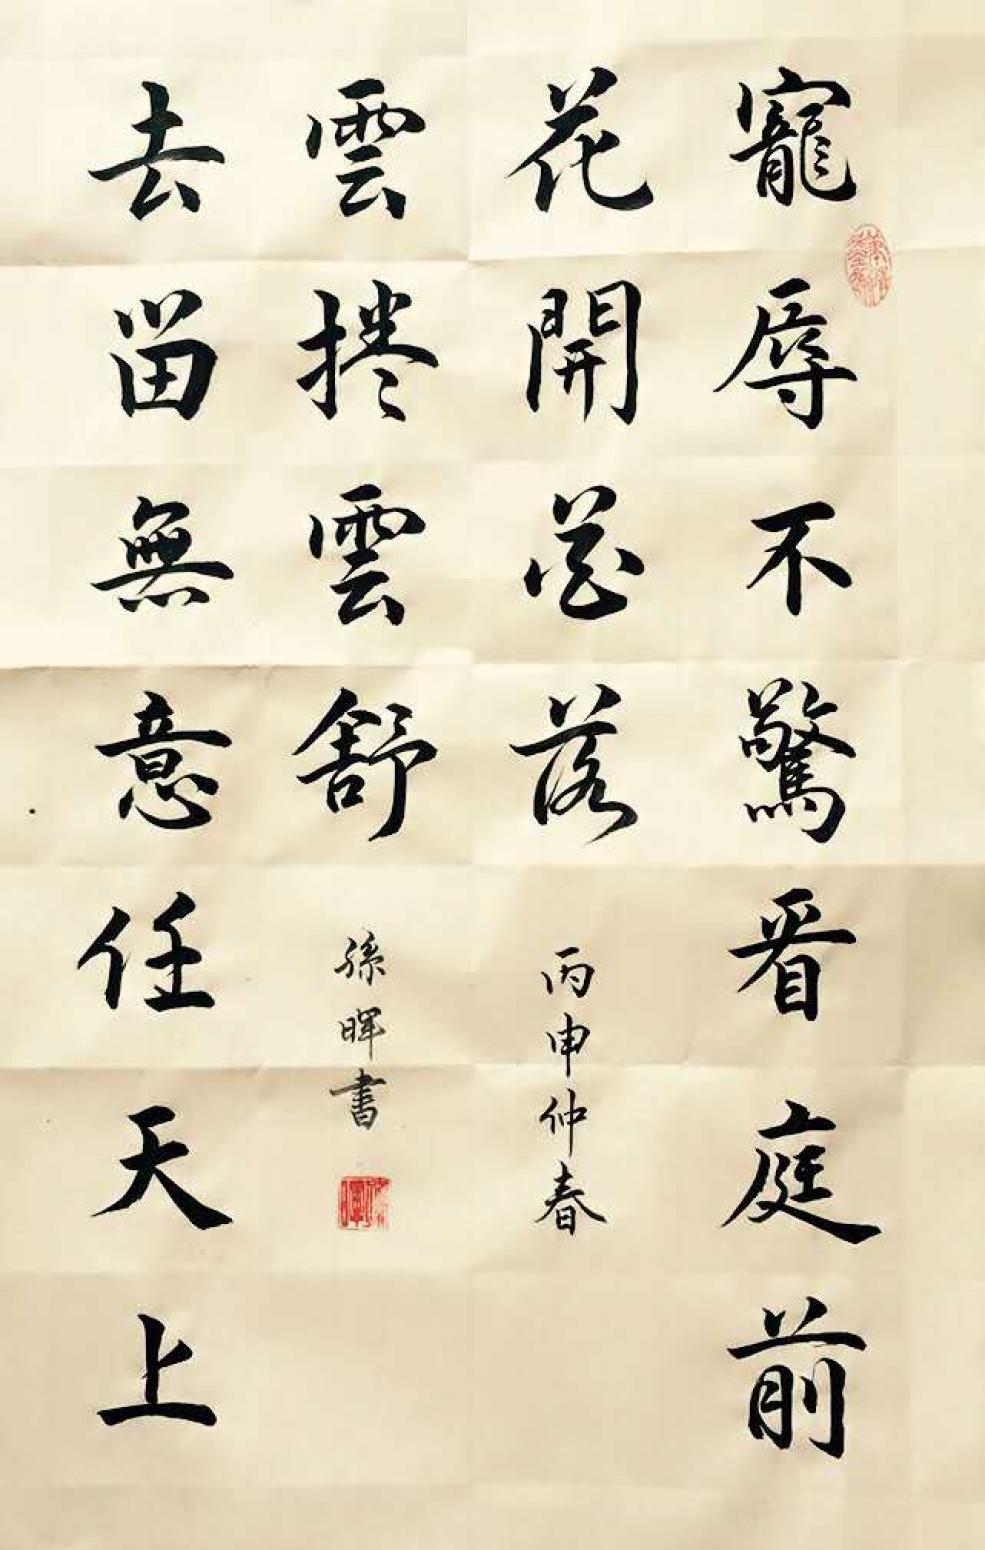 寵辱不驚看庭前
花開花落
丙申仲春
去留無意任天上
雲捲雲舒
孫暉書